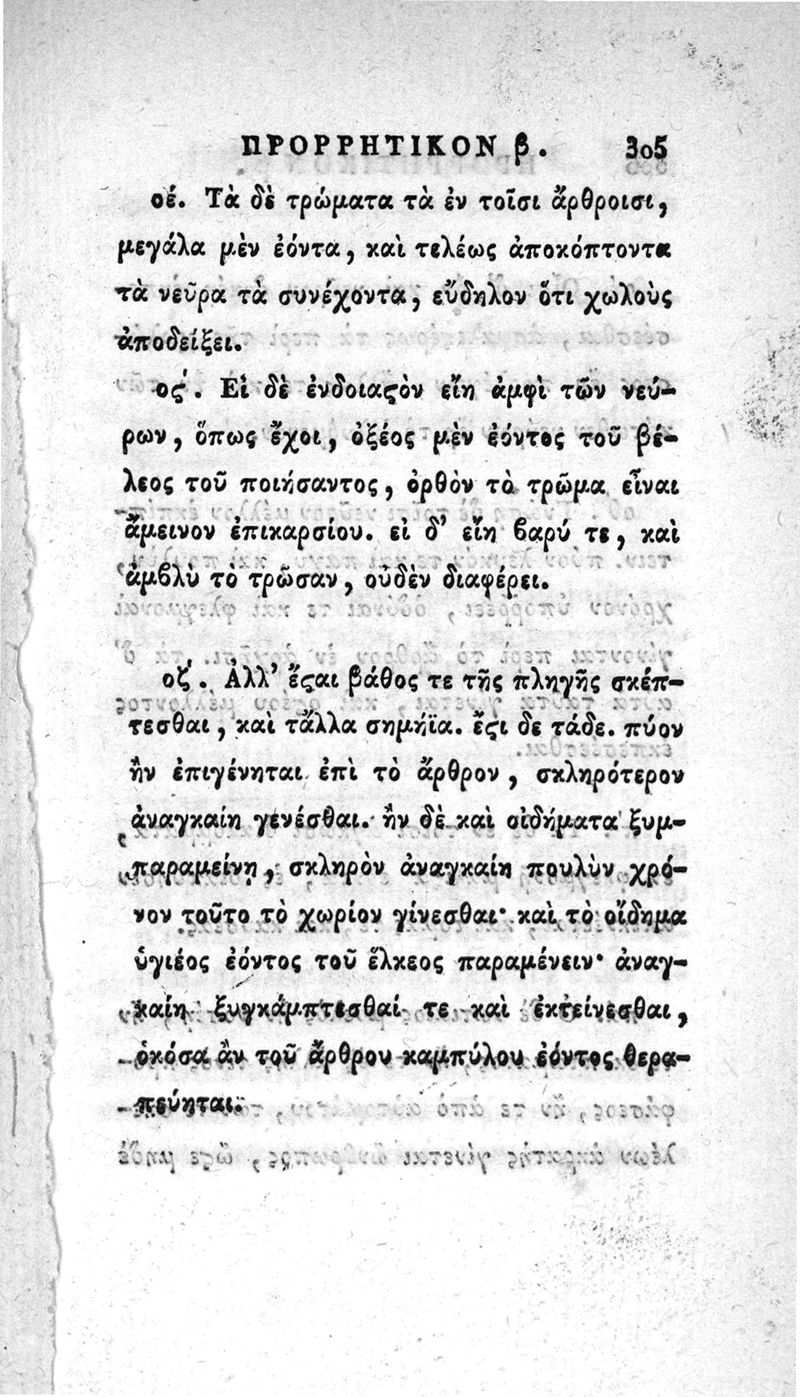 ΠΡΟΡΡΗΤΙΚΟΝ β. 305
οέ. Τὰ δὲ τρώματα τὰ ἐν τοῖσι ἄρθροισι,
μεγάλα μὲν ἐόντα, καὶ τελέως ἀποκόπτοντα
τὰ νεῦρα τὰ συνέχοντα, εὔδηλον ὅτι χωλοὺς
ἀποδείξει.
ος΄. Εἰ δὲ ἐνδοιαϛὸν εἴη ἀμφὶ τῶν νεύ-
ρων, ὅπως ἔχοι, ὀξέος μὲν ἐόντος τοῦ βέ-
λεος τοῦ ποιήσαντος, ὀρθὸν τὸ τρῶμα εἶναι
ἄμεινον ἐπικαρσίου. εἰ δ’ εἴη βαρύ τε, καὶ
ἀμβλὺ τὸ τρῶσαν, οὐδὲν διαφέρει.
οζ΄. Ἀλλ’ ἔϛαι βάθος τε τῆς πληγῆς σκέπ-
τεσθαι, καὶ τἄλλα σημήϊα. ἔϛι δε τάδε. πύον
ἢν ἐπιγένηται ἐπὶ τὸ ἄρθρον, σκληρότερον
ἀναγκαίη γενέσθαι. ἢν δὲ καὶ οἰδήματα ξυμ-
παραμείνῃ, σκληρὸν ἀναγκαίη πουλὺν χρό-
νον τοῦτο τὸ χωρίον γίνεσθαι· καὶ τὸ οἴδημα
ὑγιέος ἐόντος τοῦ ἕλκεος παραμένειν· ἀναγ-
καίη ξυγκάμπτεσθαί τε καὶ ἐκτείνεσθαι,
ὁκόσα ἂν τοῦ ἄρθρου καμπύλου ἐόντος θερα-
πεύηται.